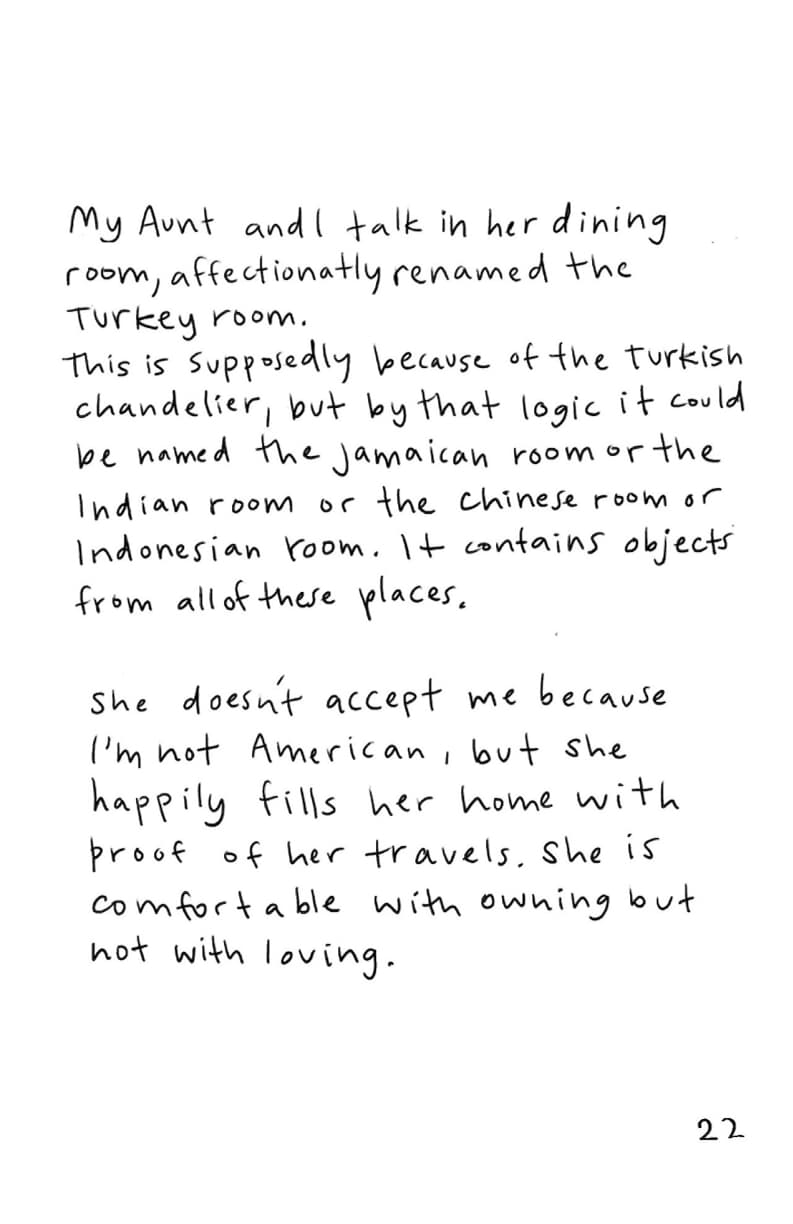 My Aunt and I talk in her dining
room, affectionatly renamed the
Turkey room.
This is supposedly because of the Turkish
chandelier, but by that logic it could
be named the Jamaican room or the
Indian room or the Chinese room or
Indonesian room. It contains objects
from all of these places.
She doesn't accept me because
I'm not American, but she
happily fills her home with
proof of her travels. She is
comfortable with owning but
not with loving.
22